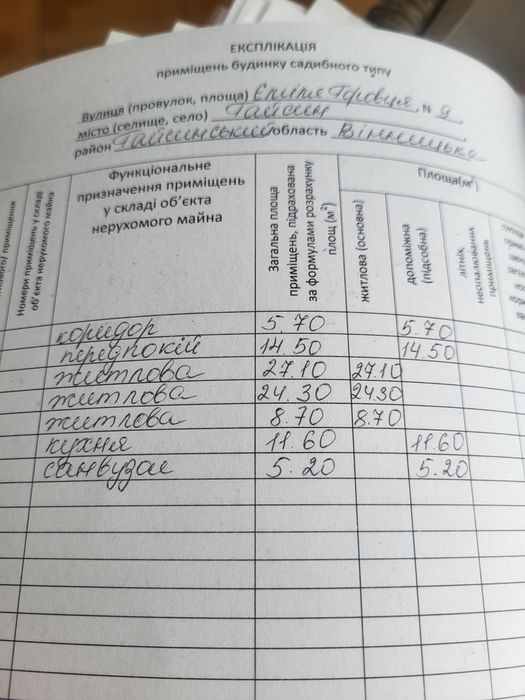 ЕКСПЛІКАЦІЯ
приміщень будинку садибного типу
Вулиця (провулок, площа) N 9
місто (селище, село) Гайсин
район Гайсинський область Вінницька
Номери приміщень у складі об'єкта нерухомого майна
Функціональне призначення приміщень у складі об'єкта нерухомого майна
Загальна площа приміщень, підрахована за формулами розрахунку площ (м²)
Площа (м²)
житлова (основна)
допоміжна (підсобна)
літніх, неопалюваних приміщень
коридор 5.70 5.70
передпокій 14.50 14.50
житлова 27.10 27.10
житлова 24.30 24.30
житлова 8.70 8.70
кухня 11.60 11.60
санвузол 5.20 5.20